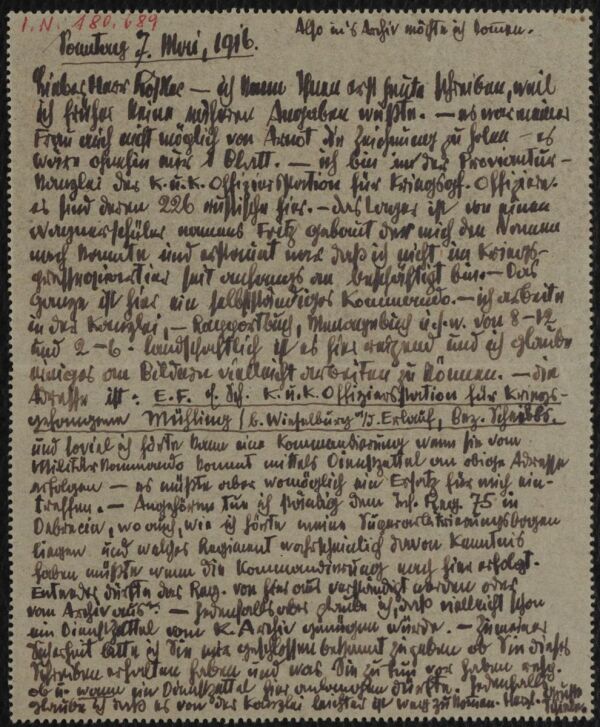 I.N. 180.689
Also in's Archiv möchte ich kommen.
Sonntag 7. Mai, 1916.
Lieber Herr Rössler — ich kann Ihnen erst heute schreiben, weil
ich früher keine näheren Angaben wußte. — es war meiner
Frau auch nicht möglich von Arnot die Zeichnung zu holen — es
wäre ohnehin nur 1 Blatt. — ich bin in der Proviantur-
kanzlei der K.u.K. Offiziersstation für Kriegsgf. Offiziere.
es sind deren 226 russische hier. — das Lager ist von einem
Wagnerschüler namens Fritz gebaut der mich dem Namen
nach kannte und erstaunt war daß ich nicht im Kriegs-
pressequartier seit anfangs an beschäftigt bin. — Das
ganze ist hier ein selbstständiges Kommando. — ich arbeite
in der Kanzlei, — Rapportbuch, Menagebuch u.s.w. von 8-12
und 2-6. landschaftlich ist es hier reizend und ich glaube
einiges an Bildern vielleicht arbeiten zu können. — die
Adresse ist: E.F. E. Sch. K.u.K. Offiziersstation für Kriegs-
gefangene Mühling / b. Wieselburg a/d. Erlauf, Bez. Scheibbs.
und soviel ich hörte kann eine Kommandierung wenn sie vom
Militärkommando kommt mittels Dienstzettel an obige Adresse
erfolgen — es müßte aber womöglich ein Ersatz für mich ein-
treffen. — Angehören tue ich ständig dem Inf. Reg. 75 in
Debrecin, wo auch, wie ich hörte meine
liegen und welches Regiment wahrscheinlich davon Kenntnis
haben müßte wenn die Kommandierung nach hier erfolgt.
Entweder dürfte das Reg. von hier aus verständigt werden oder
vom Archiv aus. — Jedenfalls aber glaube ich, daß vielleicht schon
ein Dienstzettel vom K. Archiv genügen würde. — Zu meiner
Sicherheit bitte ich Sie mir geschlossen bekannt zu geben ob Sie dieses
Schreiben erhalten haben und was Sie zu tun vor haben resp.
ob u. wann ein Dienstzettel hier anlangen dürfte. Jedenfalls
glaube ich daß es von der Kanzlei leichter ist weg zu kommen. Herzl.